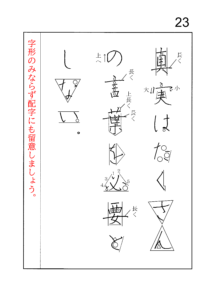 23
長く
真実はたくさん
大 小
の言葉を必要と
上へ
長く
上長く
長く
長く
しない。
字形のみならず配字にも留意しましょう。